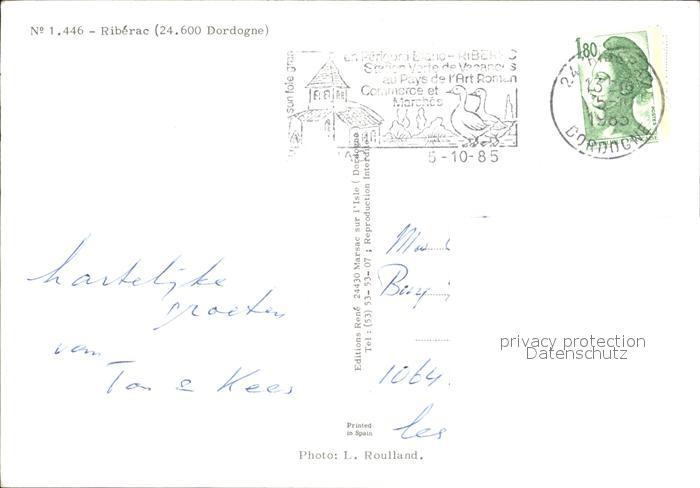 Nº 1.446 - Ribérac (24.600 Dordogne)
son foie gras
en Périgord Blanc - RIBERAC
Station Verte de Vacances
au Pays de l'Art Roman
Commerce et
Marchés
5-10-85
1,80
1985
DORDOGNE
hartelijke
groeten
van
Ton & Kees
Editions René 24430 Marsac sur l'Isle ( Dordogne
Tel : (53) 53-53-07 ; Reproduction Interdite
1064
les
privacy protection
Datenschutz
Printed
in Spain
Photo: L. Roulland.